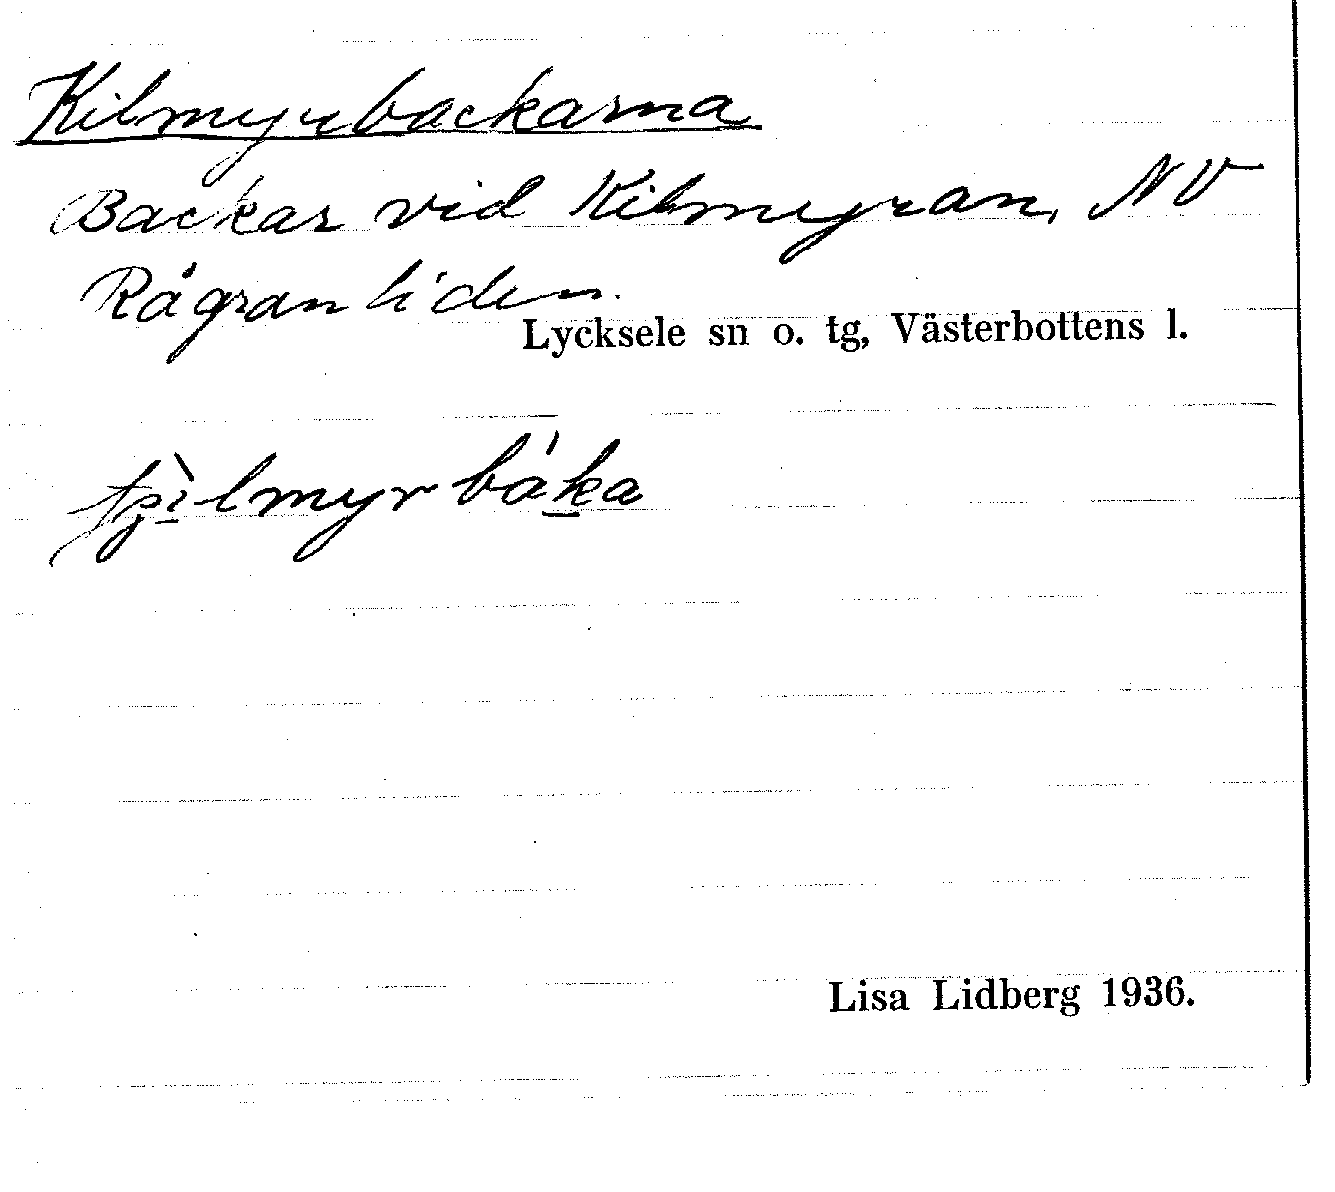 Kilmyrbackarna
Backar vid Kilmyran, NV
Rågranliden.
Lycksele sn o. tg, Västerbottens l.
Lisa Lidberg 1936.